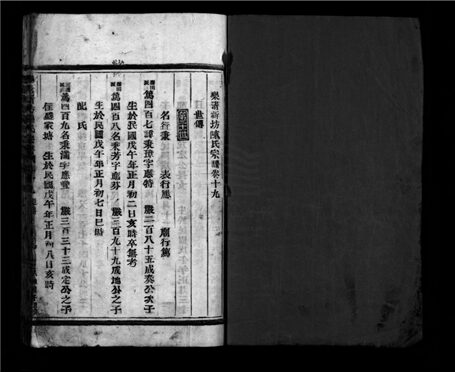 樂清新坊陳氏宗譜卷十九
世傳
名行秉 表行應 廟行萬
萬四百七諱秉璋字應特 嚴二百八十五成癸公次子
生於民國戊午年正月初二日亥時卒無考
萬四百八名秉芳字應芬 嚴三百九十九成地公之子
生於民國戊午年正月初七日巳時
配 氏
萬四百九名秉滿字應豐 嚴三百三十三成定公之子
住盛家塘 生於民國戊午年正月初八日亥時